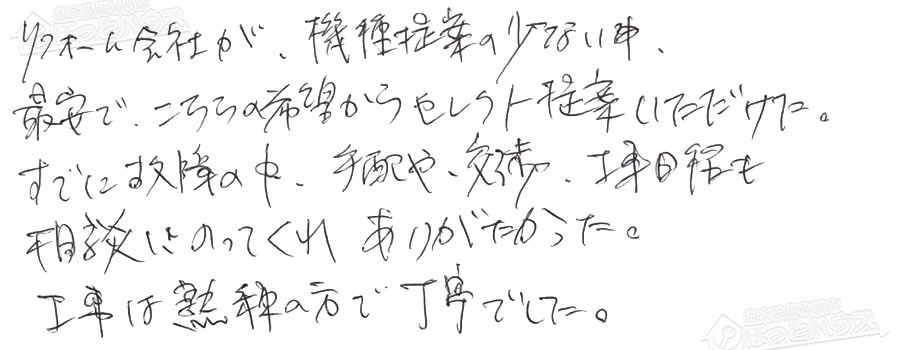 リフォーム会社が、機種提案の少ない中、
最安で、こちらの希望からセレクト提案いただけた。
すでに故障の中、手配や、交渉、工事日程も
相談にのってくれ ありがたかった。
工事は熟練の方で丁寧でした。